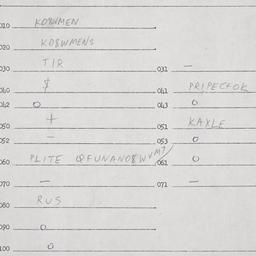 010 KOBWMEN
020 KOBWMENS
030 TIR 031 —
040 $ 041 PRIPECTOK
042 O 043 O
050 + 051 KAXLE
052 — 053 O
060 PLITE 061 O
070 — 071 —
080 RUS
090 O
100 O